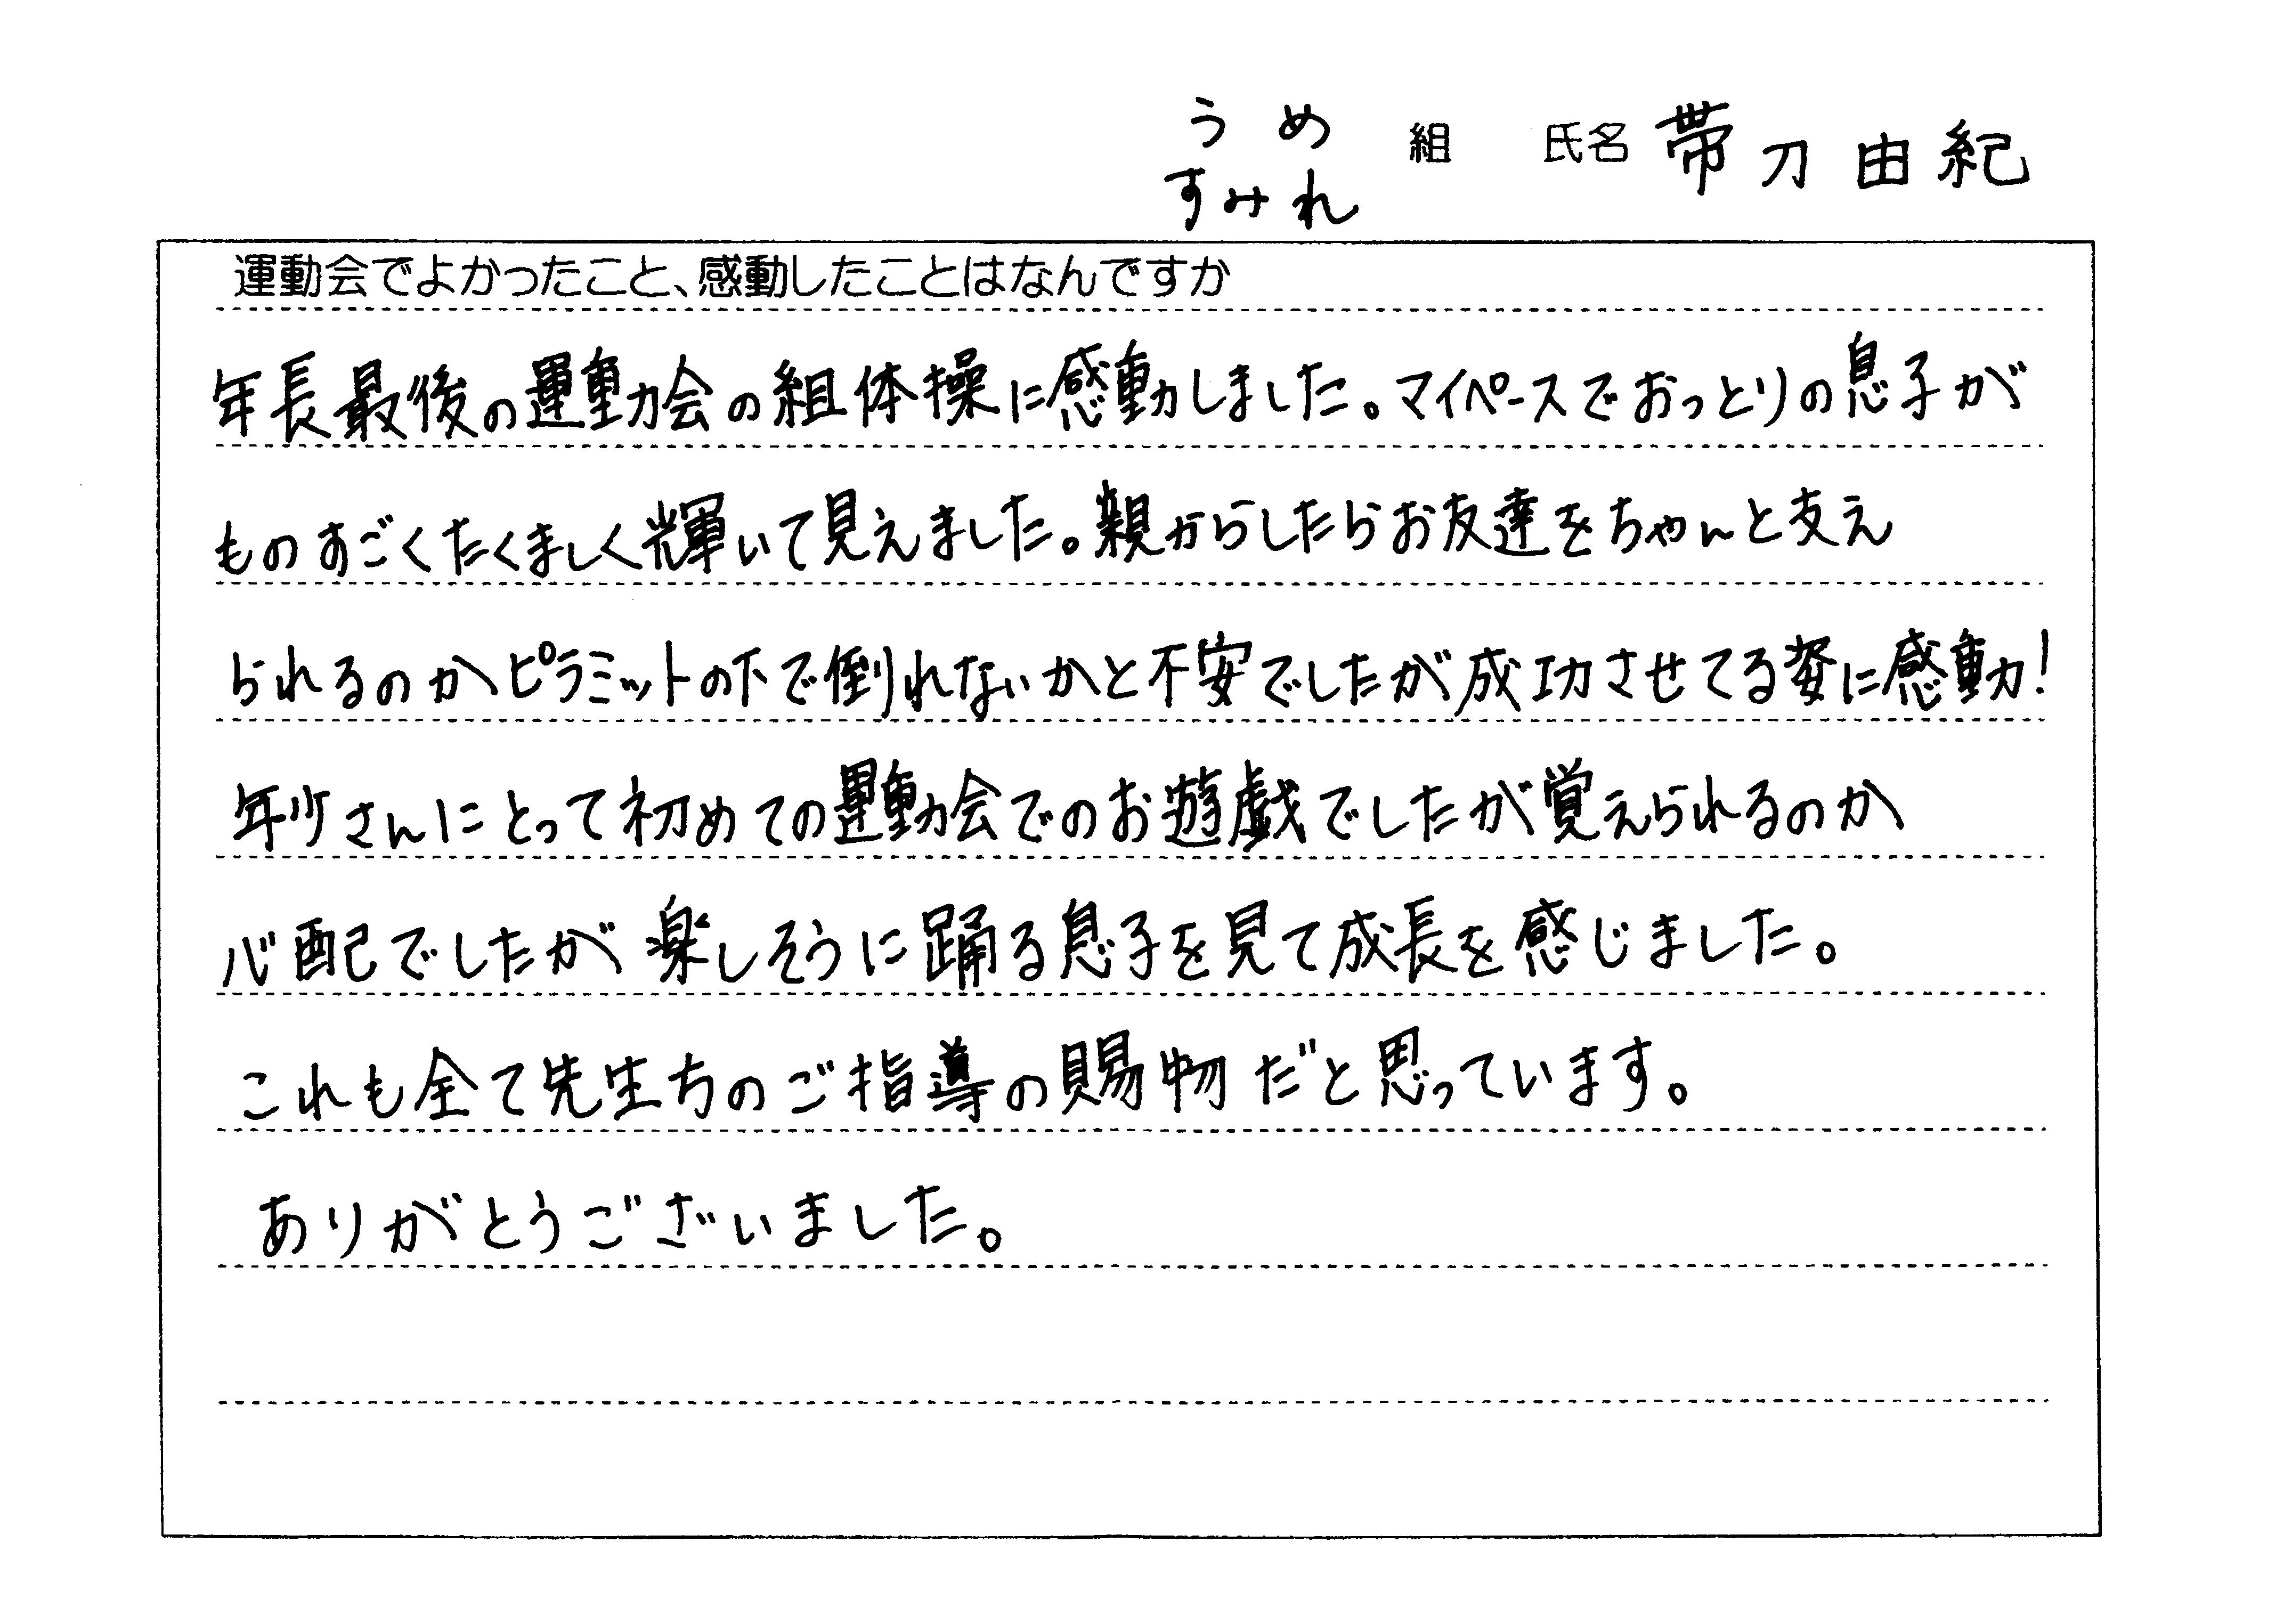 うめ
すみれ
組 氏名 帯刀由紀
運動会でよかったこと、感動したことはなんですか
年長最後の運動会の組体操に感動しました。マイペースでおっとりの息子が
ものすごくたくましく輝いて見えました。親からしたらお友達をちゃんと支え
られるのかピラミットの下で倒れないかと不安でしたが成功させてる姿に感動!
年少さんにとって初めての運動会でのお遊戯でしたが覚えられるのか
心配でしたが楽しそうに踊る息子を見て成長を感じました。
これも全て先生方のご指導の賜物だと思っています。
ありがとうございました。